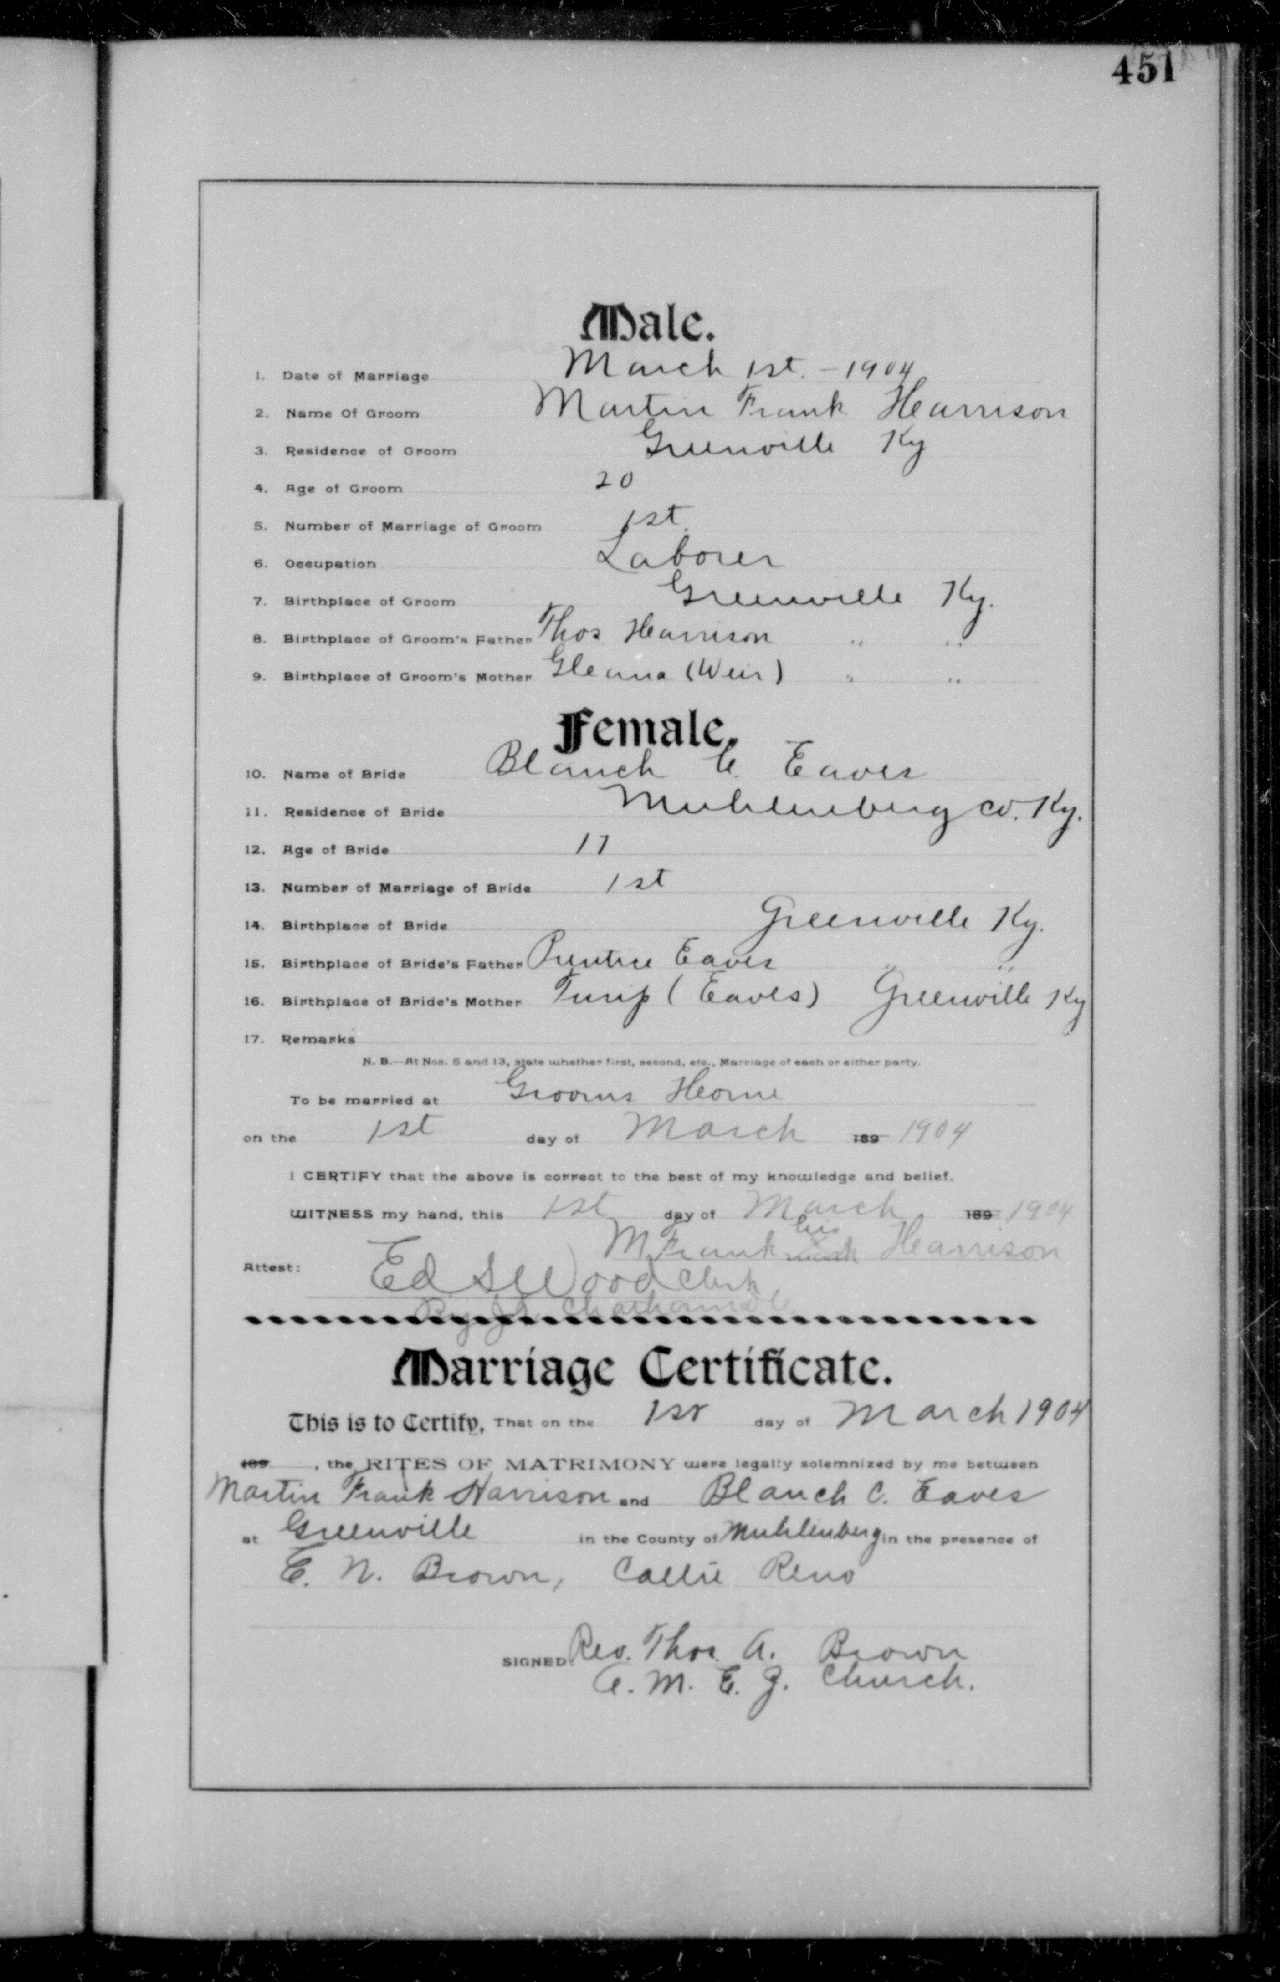 451
Male.
1. Date of Marriage March 1st. - 1904
2. Name Of Groom Martin Frank Harrison
3. Residence of Groom Greenville Ky
4. Age of Groom 20
5. Number of Marriage of Groom 1st.
6. Occupation Laborer
7. Birthplace of Groom Greenville Ky.
8. Birthplace of Groom's Father Thos Harrison " "
9. Birthplace of Groom's Mother (Weir) " "
Female.
10. Name of Bride Blanch C. Eaves
11. Residence of Bride Muhlenberg co. Ky.
12. Age of Bride 17
13. Number of Marriage of Bride 1st
14. Birthplace of Bride Greenville Ky.
15. Birthplace of Bride's Father Prentice Eaves " "
16. Birthplace of Bride's Mother (Eaves) Greenville Ky
17. Remarks
N. B.—At Nos. 5 and 13, state whether first, second, etc., Marriage of each or either party.
To be married at Grooms Home
on the 1st day of March 189 1904
I CERTIFY that the above is correct to the best of my knowledge and belief.
WITNESS my hand, this 1st day of March 189 1904
M Frank his mark Harrison
Attest: Ed S Wood Clerk
By
Marriage Certificate.
This is to Certify, That on the 1st day of March 1904
189 , the RITES OF MATRIMONY were legally solemnized by me between
Martin Frank Harrison and Blanch C. Eaves
at Greenville in the County of Muhlenberg in the presence of
E. N. Brown, Callie Reno
SIGNED: Rev. Thos. A. Brown
A. M. E. Z. Church.